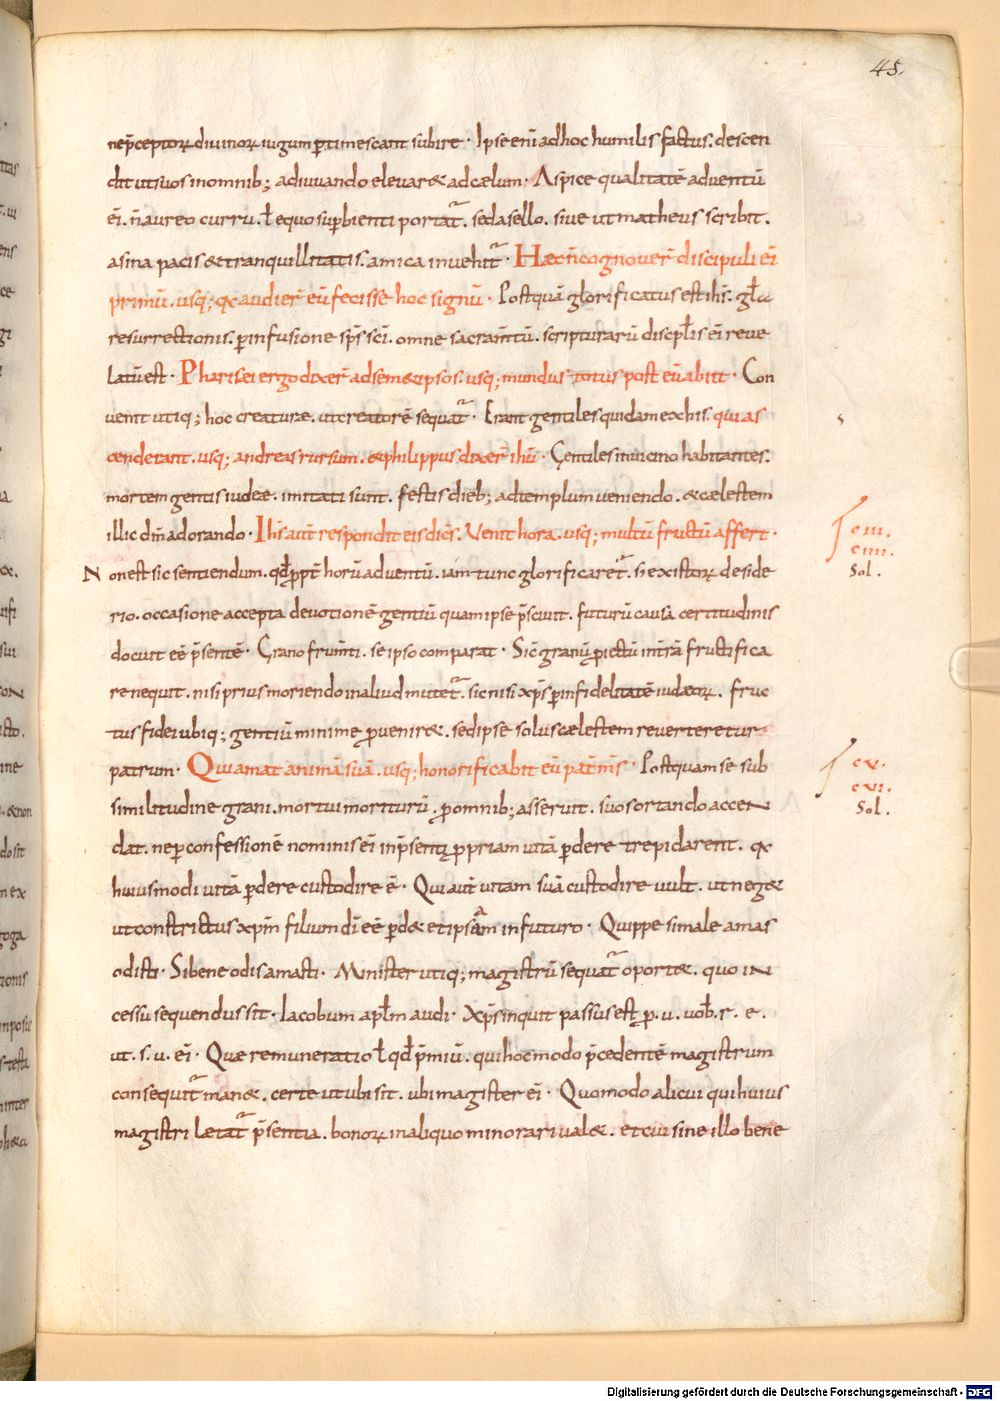 45.
nep̄ceptoꝝ divinoꝝ iugum ꝑtimescant subire · Ipse enī adhoc humilis factus. descen
dit utsuos inomnib; adiuvando elevar& adcælum · Aspice qualitatē adventū
eī. n̄ aureo curru. ł equo supbienti portat᷑. sedasello. sive ut matheus scribit.
asina pacis &tranquillitatis. amica invehit᷑ · Hæc n̄ cognover̄ discipuli eī
primū. usq; qa audier̄ eū fecisse hoc signū · Postquā glorificatus est ihs̄. gła
resurrectionis. ꝑ infusione sps̄ scī. omne sacram̄tū. scripturarū discipłis eī reve
latū est · Pharisei ergo dixer̄ adsem&ipsos. usq; mundus totus post eū abiit · Con
venit utiq; hoc creaturæ. ut creatorē sequat᷑ · Erant gentiles quidam ex his. qui as
cenderant. usq; andreas rursum. &philippus dixer̄ ihū · Gentiles invicino habitantes.
mortem gentis iudeæ. imitati sunt. festis dieb; adtemplum veniendo. &cælestem
illic dn̄m adorando · Ihs̄ aut̄ respondit eis dic̄s. Venit hora. usq; multū fructū affert ·
Non est sic sentiendum. qđ ꝓpt̄ horū adventū. iam tunc glorificaret᷑. s; existoꝝ deside
rio. occasione accepta devotionē gentiū quam ipse p̄scivit. futurū causa certitudinis
docuit eē p̄sentē · Grano frum̄ti. se ipso comparat · Sic̄ granū ꝓiectū intr̄a fructifica
re nequit. nisi prius moriendo inaliud mutet᷑. sic nisi xp̄s ꝑ infidelitatē iudæoꝝ. fruc
tus fidei ubiq; gentiū minime ꝓvenir&. sed ipse solus cælestem reverteretur
patrum · Qui amat animā suā. usq; honorificabit eū pat̄ m̄s · Postquam se sub
similitudine grani. mortui moriturū. ꝓ omnib; asseruit. suos ortando accen
dat. ne ꝑ confessionē nominis eī inp̄senti ꝓpriam vitā ꝑdere trepidarent. qa
huiusmodi vitā ꝑdere custodire ē · Qui aut̄ vitam suā custodire vult. ut neg&
ut constrictus xp̄m filium dī eē ꝑd& et ipsam in futuro · Quippe si male amas
odisti · Si bene odis amasti · Minister utiq; magistrū sequat᷑ oport&. quo in
cessu sequendus sit · Iacobum apłm audi · Xp̄s inquit passus est ꝓ. v. vob̄. r. e.
ut. s. v. eī · Quæ remuneratio ł qđ p̄miū. qui hoc modo p̄cedentē magistrum
consequit᷑ man&. certe ut ubi sit. ubi magister eī · Quomodo alicui qui huius
magistri lætat᷑ p̄sentia. bonoꝝ inaliquo minorari val&. et cui sine illo bene
ciii.
ciiii.
Sol.
cv.
cvi.
Sol.
Digitalisierung gefördert durch die Deutsche Forschungsgemeinschaft - DFG